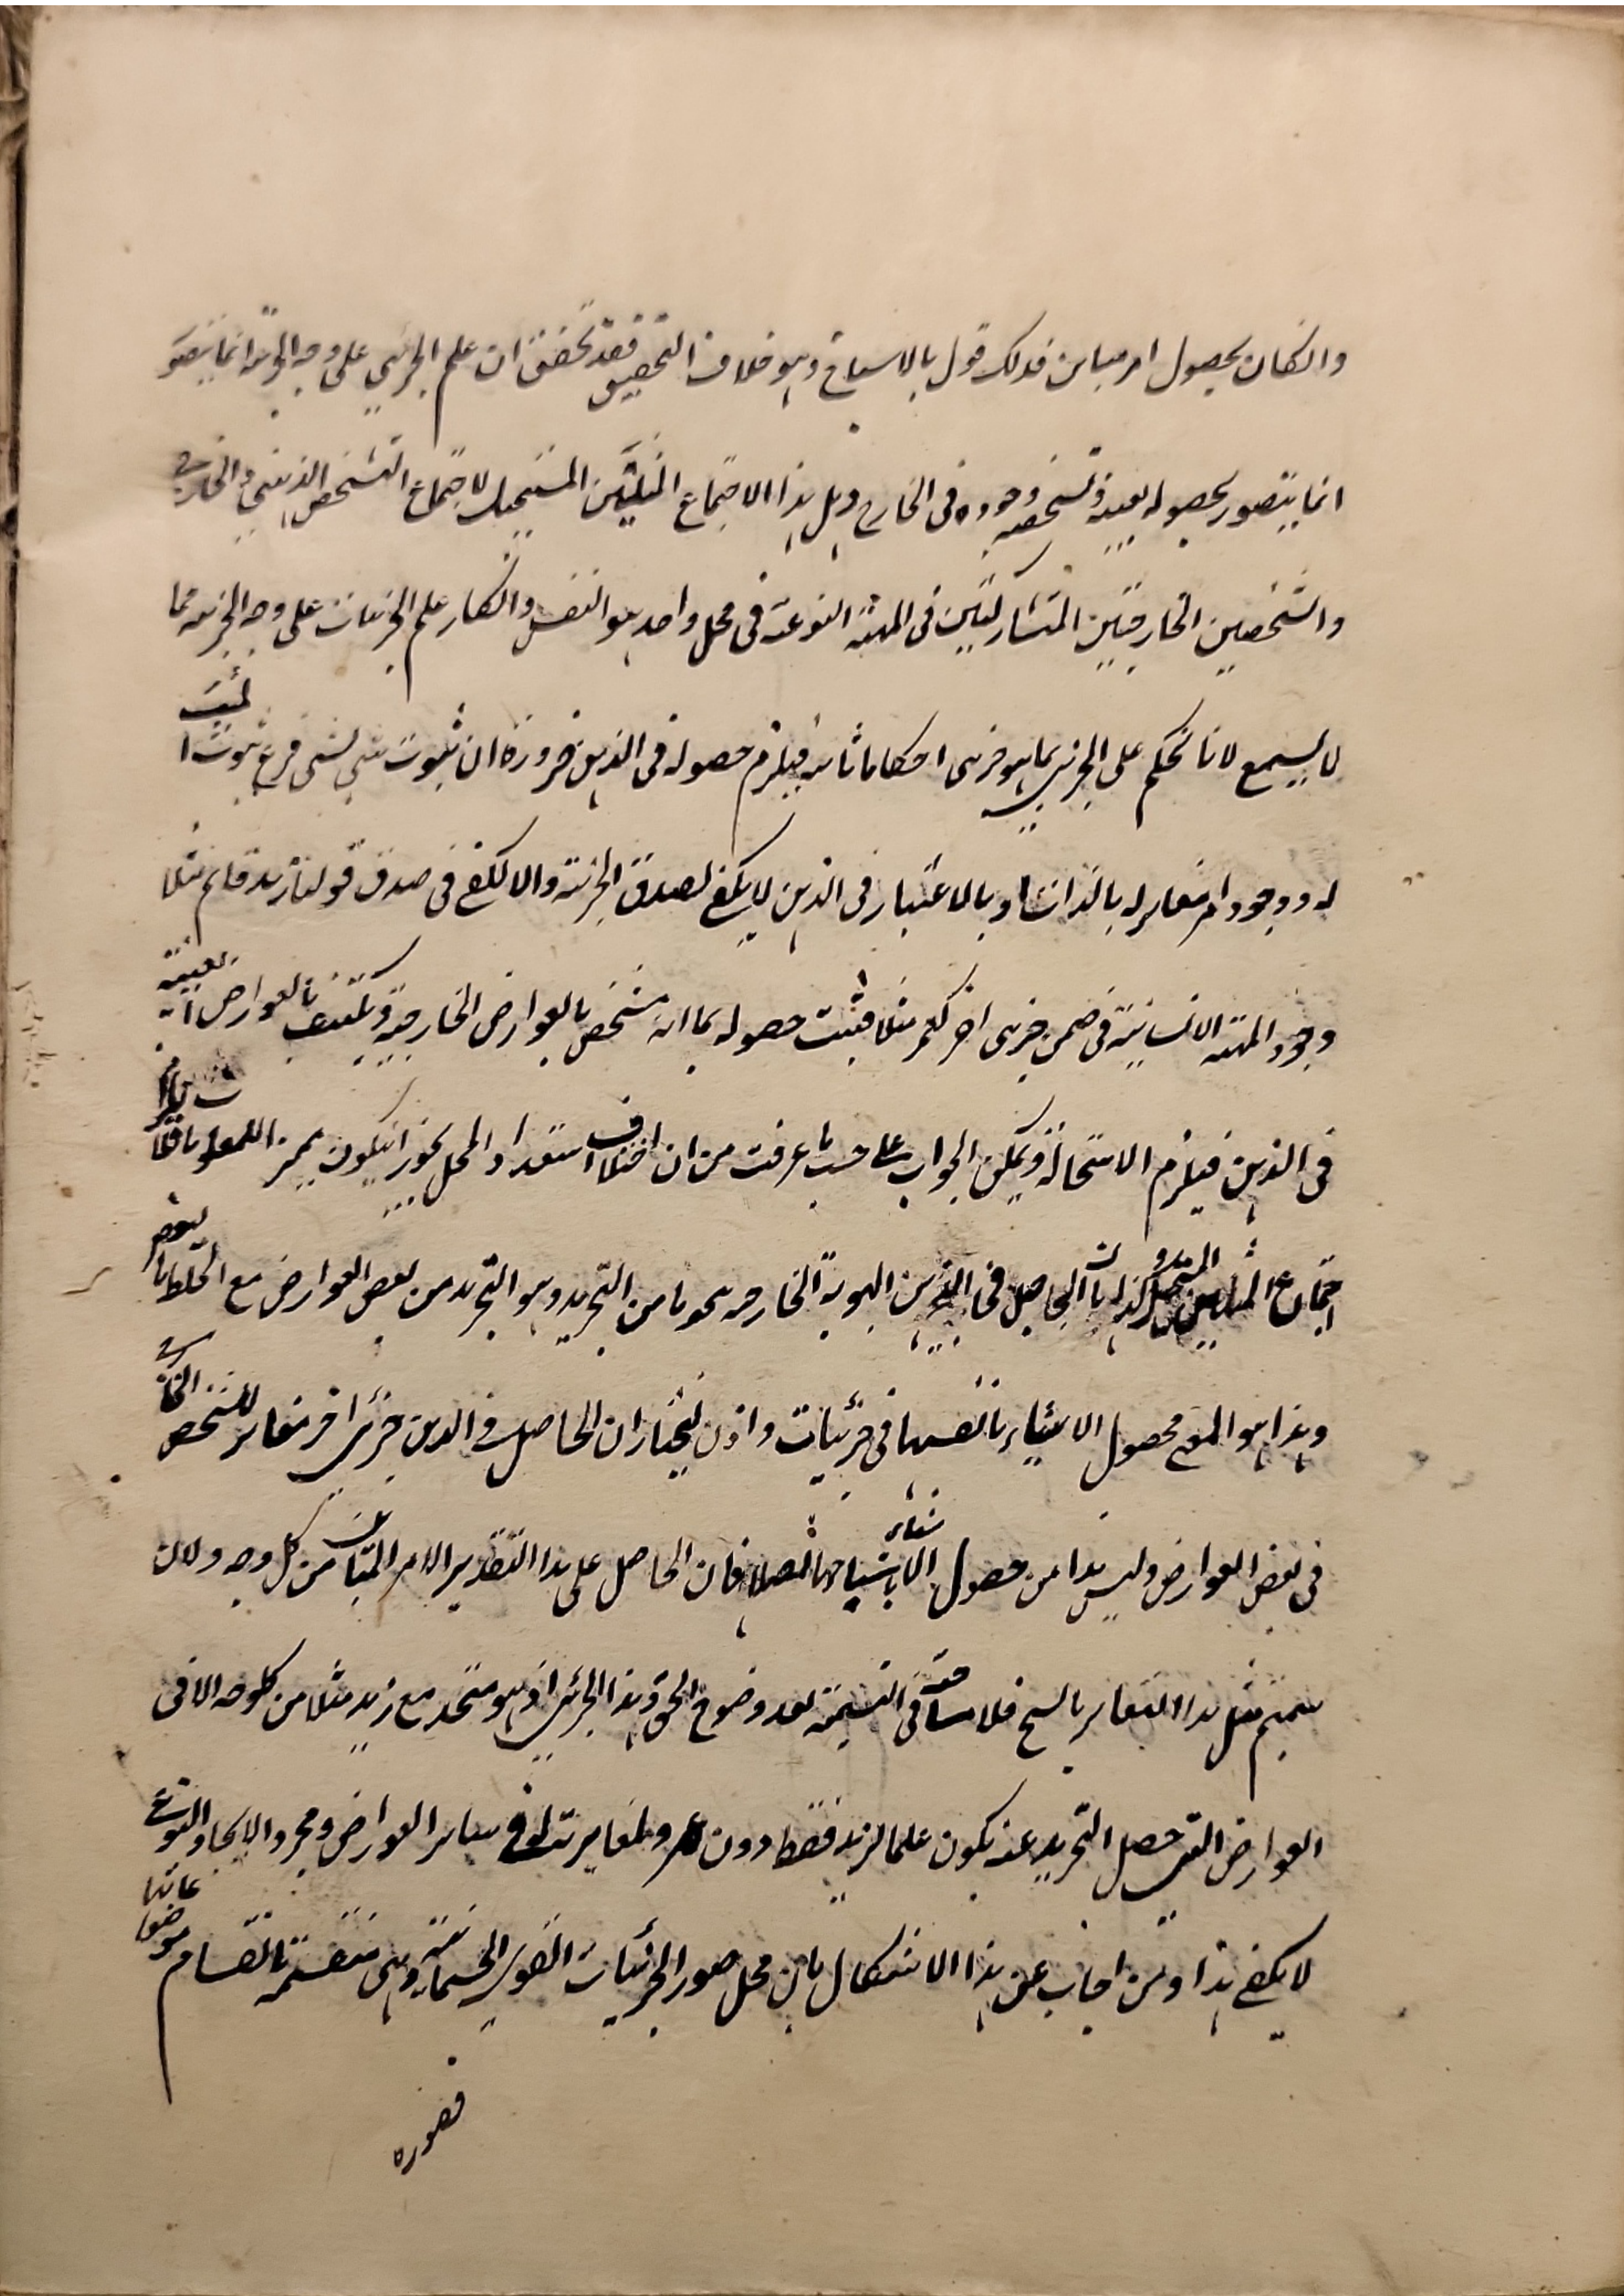 وانكان بحصول امر مباين فذلك قول بالاشباح وهو خلاف التحقيق فقد تحقق ان علم الجزئي على وجه الجزئية انما يتصور
انما يتصور بحصوله بعينه وتشخصه وجوده فى الخارج وهل هذا الا اجتماع المثلين المستحيل لاجتماع التشخص الذهني والخارجي
والشخصين الخارجيين المتشاركين فى المهية النوعية فى محل واحد هو النفس وانكار علم الجزئيات على وجه الجزئية مما
لا يسمع لانا نحكم على الجزئي بما هو جزئي احكاما ثابتة فيلزم حصوله فى الذهن ضرورة ان ثبوت شي لشي فرع ثبوت المثبت
له ووجود امر مغاير له بالذات او بالاعتبار فى الذهن لا يكفي لصدق الجزئية والا لكفى فى صدق قولنا زيد قائم مثلا
وجود المهية الانسانية فى ضمن جزئي اخر كعمر مثلا فثبت حصوله بما انه مشخص بالعوارض الخارجية ومكتنف بالعوارض الذهنية
فى الذهن فيلزم الاستحالة ويمكن الجواب على حسب ما عرفت من ان اختلاف استعداد المحل يجوز ان يكون مميز المعلومات فلا يلزم
اجتماع المثلين المستحيل بان الحاصل فى الذهن الهوية الخارجية نحوا من التجريد وهو التجريد من بعض العوارض مع الخلط ببعض
وهذا هو المعنى بحصول الاشياء بانفسها فى جزئيات واذن نختار ان الحاصل فى الذهن جزئي اخر مغاير للشخص الخارجي
فى بعض العوارض وليس هذا من حصول الاشياء باشباحها اصلا فان الحاصل على هذا التقدير الامر المباين من كل وجه ولان
سميتم مثل هذا التغاير بالشبح فلا مناقشة فى التسمية بعد وضوح الحق وهذا الجزئي اذ هو متحد مع زيد مثلا من كل وجه الا فى
العوارض التي حصل التجريد عنه يكون علما لزيد فقط دون عمرو لمغايرته له فى سائر العوارض ومجرد الاتحاد النوعي
لا يكفي هذا ومن اجاب عن هذا الاشكال بان محل صور الجزئيات القوى الجسمانية وهي منقسمة بانقسام موضوعاتها
فصوره